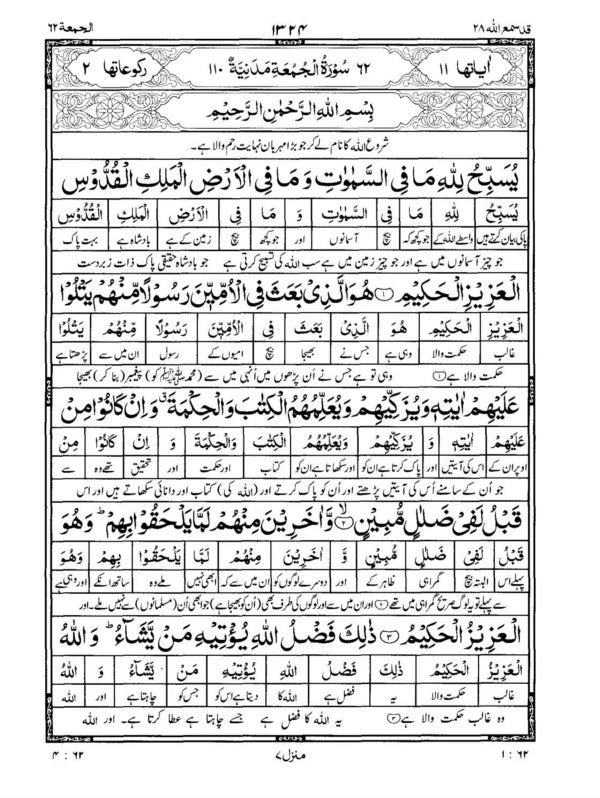 قد سمع الله ۲۸ ۱۳۲۴ الجمعة ۶۲
اٰیاتها ۱۱ ۶۲ سُوْرَةُ الْجُمُعَةِ مَدَنِيَّةٌ ۱۱۰ رکوعاتها ۲
بِسْمِ اللهِ الرَّحْمٰنِ الرَّحِيْمِ
شروع اللہ کا نام لے کر جو بڑا مہربان نہایت رحم والا ہے۔
يُسَبِّحُ لِلّٰهِ مَا فِي السَّمٰوٰتِ وَ مَا فِي الْاَرْضِ الْمَلِكِ الْقُدُّوْسِ
يُسَبِّحُ لِلّٰهِ مَا فِي السَّمٰوٰتِ وَ مَا فِي الْاَرْضِ الْمَلِكِ الْقُدُّوْسِ
پاکی بیان کرتے ہیں واسطے اللہ کے جو کچھ کہ بیچ آسمانوں اور جو کچھ بیچ زمین کے ہے بادشاہ ہے بہت پاک
جو چیز آسمانوں میں ہے اور جو چیز زمین میں ہے سب اللہ کی تسبیح کرتی ہے جو بادشاہ حقیقی پاک ذات زبردست
الْعَزِيْزِ الْحَكِيْمِ ۝۱ هُوَ الَّذِيْ بَعَثَ فِي الْاُمِّيّٖنَ رَسُوْلًا مِّنْهُمْ يَتْلُوْا
الْعَزِيْزِ الْحَكِيْمِ هُوَ الَّذِيْ بَعَثَ فِي الْاُمِّيّٖنَ رَسُوْلًا مِّنْهُمْ يَتْلُوْا
غالب حکمت والا وہی ہے جس نے بھیجا بیچ امیوں کے رسول ان میں سے پڑھتا ہے
حکمت والا ہے ۝۱ وہی تو ہے جس نے اُن پڑھوں میں اُنہی میں سے (محمد ﷺ کو) پیغمبر (بنا کر) بھیجا
عَلَيْهِمْ اٰيٰتِهٖ وَيُزَكِّيْهِمْ وَيُعَلِّمُهُمُ الْكِتٰبَ وَالْحِكْمَةَ ۗ وَاِنْ كَانُوْا مِنْ
عَلَيْهِمْ اٰيٰتِهٖ وَ يُزَكِّيْهِمْ وَيُعَلِّمُهُمُ الْكِتٰبَ وَالْحِكْمَةَ وَ اِنْ كَانُوْا مِنْ
اوپر ان کے اس کی آیتیں اور پاک کرتا ہے ان کو اور سکھاتا ہے ان کو کتاب اور حکمت اور تحقیق تھے وہ سے
جو اُن کے سامنے اُس کی آیتیں پڑھتے اور اُن کو پاک کرتے اور (اللہ کی) کتاب اور دانائی سکھاتے ہیں اور اس
قَبْلُ لَفِيْ ضَلٰلٍ مُّبِيْنٍ ۝۲ وَّاٰخَرِيْنَ مِنْهُمْ لَمَّا يَلْحَقُوْا بِهِمْ ۚ وَهُوَ
قَبْلُ لَفِيْ ضَلٰلٍ مُّبِيْنٍ وَّ اٰخَرِيْنَ مِنْهُمْ لَمَّا يَلْحَقُوْا بِهِمْ وَهُوَ
پہلے اس البتہ بیچ گمراہی ظاہر کے اور دوسرے لوگوں کو ان میں سے کہ ابھی نہیں ملے وہ ساتھ انکے اور وہی ہے
سے پہلے تو یہ لوگ صریح گمراہی میں تھے ۝۲ اور ان میں سے اور لوگوں کی طرف بھی (اُن کو بھیجا ہے) جو ابھی اُن (مسلمانوں) سے نہیں ملے۔ اور
الْعَزِيْزُ الْحَكِيْمُ ۝۳ ذٰلِكَ فَضْلُ اللهِ يُؤْتِيْهِ مَنْ يَّشَآءُ ۚ وَ اللهُ
الْعَزِيْزُ الْحَكِيْمُ ذٰلِكَ فَضْلُ اللهِ يُؤْتِيْهِ مَنْ يَّشَآءُ وَ اللهُ
غالب حکمت والا یہ فضل ہے اللہ کا دیتا ہے اس کو جس کو چاہتا ہے اور اللہ
وہ غالب حکمت والا ہے ۝۳ یہ اللہ کا فضل ہے جسے چاہتا ہے عطا کرتا ہے۔ اور اللہ
۱ : ۶۲ منزل ۷ ۴ : ۶۲